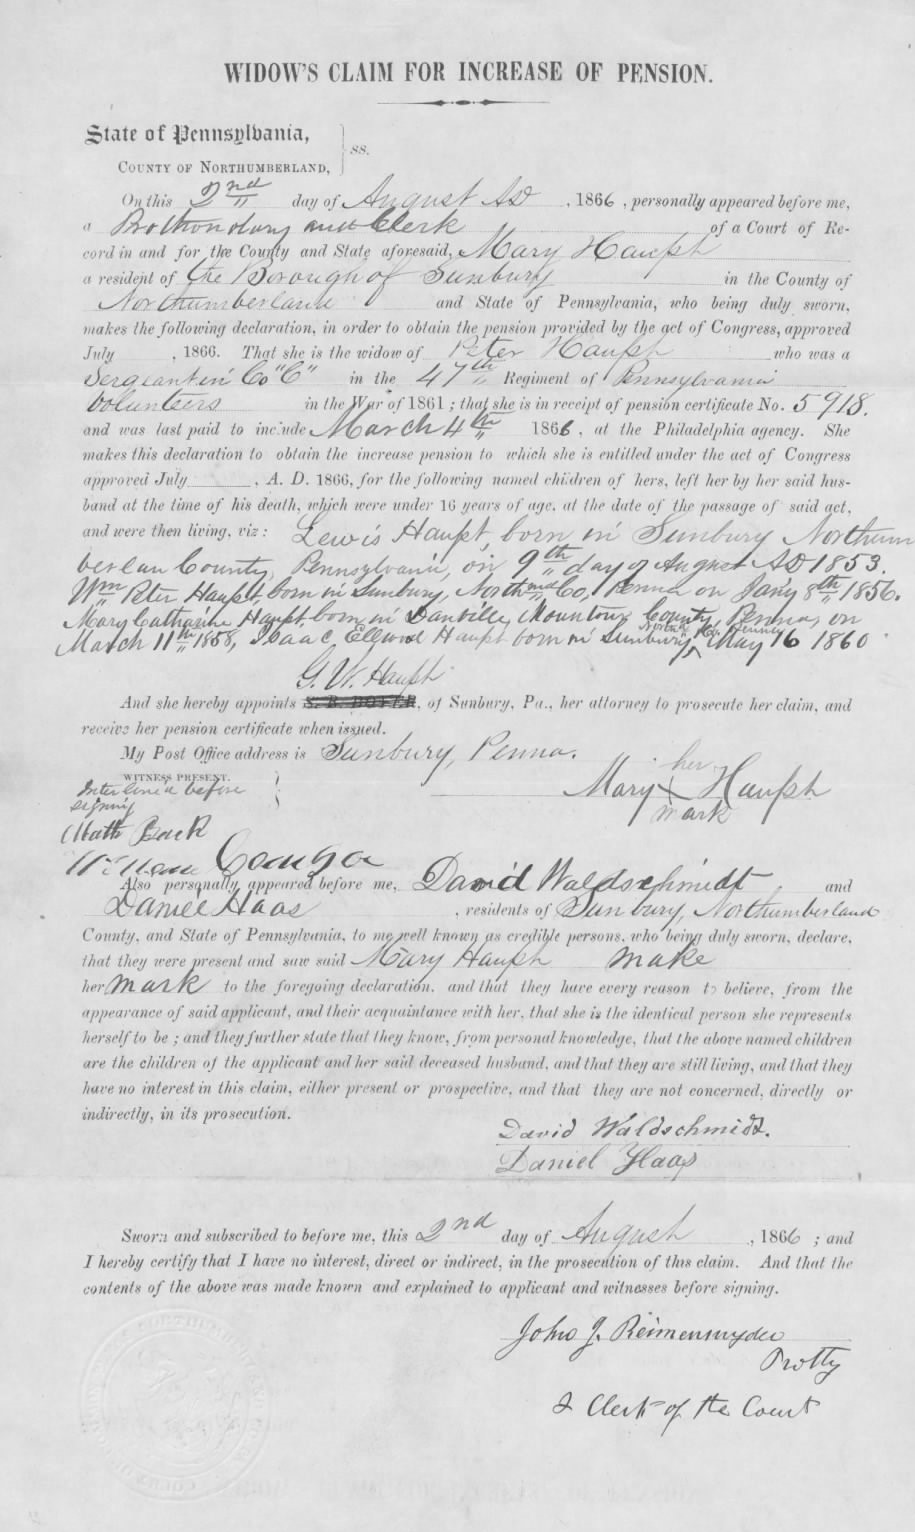 WIDOW'S CLAIM FOR INCREASE OF PENSION.
State of Pennsylvania,
COUNTY OF NORTHUMBERLAND, } ss.
On this 2nd day of August AD, 1866, personally appeared before me,
a Prothonotary and Clerk of a Court of Re-
cord in and for the County and State aforesaid, Mary Haupt
a resident of the Borough of Sunbury in the County of
Northumberland and State of Pennsylvania, who being duly sworn,
makes the following declaration, in order to obtain the pension provided by the act of Congress, approved
July , 1866. That she is the widow of Peter Haupt who was a
Sergeant in Co "C" in the 47th Regiment of Pennsylvania
Volunteers in the War of 1861; that she is in receipt of pension certificate No. 5918.
and was last paid to include March 4th 1866, at the Philadelphia agency. She
makes this declaration to obtain the increase pension to which she is entitled under the act of Congress
approved July , A. D. 1866, for the following named children of hers, left her by her said hus-
band at the time of his death, which were under 16 years of age, at the date of the passage of said act,
and were then living, viz: Lewis Haupt, born in Sunbury Northum
berlan County, Pennsylvania, on 9th day of August AD 1853.
Wm Peter Haupt, born in Sunbury, Northmd Co, Penna on Jan'y 8th 1856.
Mary Catharine Haupt, born in Danville, Mountour County, Penna, on
March 11th 1858, Isaac Ellwood Haupt born in Sunbury, May 16 1860
G. W. Haupt
And she hereby appoints S. B. BOYER, of Sunbury, Pa., her attorney to prosecute her claim, and
receive her pension certificate when issued.
My Post Office address is Sunbury, Penna.
WITNESS PRESENT.
Interlined before
signing
her
Mary X Haupt
mark
Also personally appeared before me, David Waldschmidt and
Daniel Haas, residents of Sunbury, Northumberland
County, and State of Pennsylvania, to me well known as credible persons, who being duly sworn, declare,
that they were present and saw said Mary Haupt make
her mark to the foregoing declaration, and that they have every reason to believe, from the
appearance of said applicant, and their acquaintance with her, that she is the identical person she represents
herself to be; and they further state that they know, from personal knowledge, that the above named children
are the children of the applicant and her said deceased husband, and that they are still living, and that they
have no interest in this claim, either present or prospective, and that they are not concerned, directly or
indirectly, in its prosecution.
David Waldschmidt.
Daniel Haas
Sworn and subscribed to before me, this 2nd day of August, 1866; and
I hereby certify that I have no interest, direct or indirect, in the prosecution of this claim. And that the
contents of the above was made known and explained to applicant and witnesses before signing.
John J. Reimensnyder
Protty
& Clerk of the Court